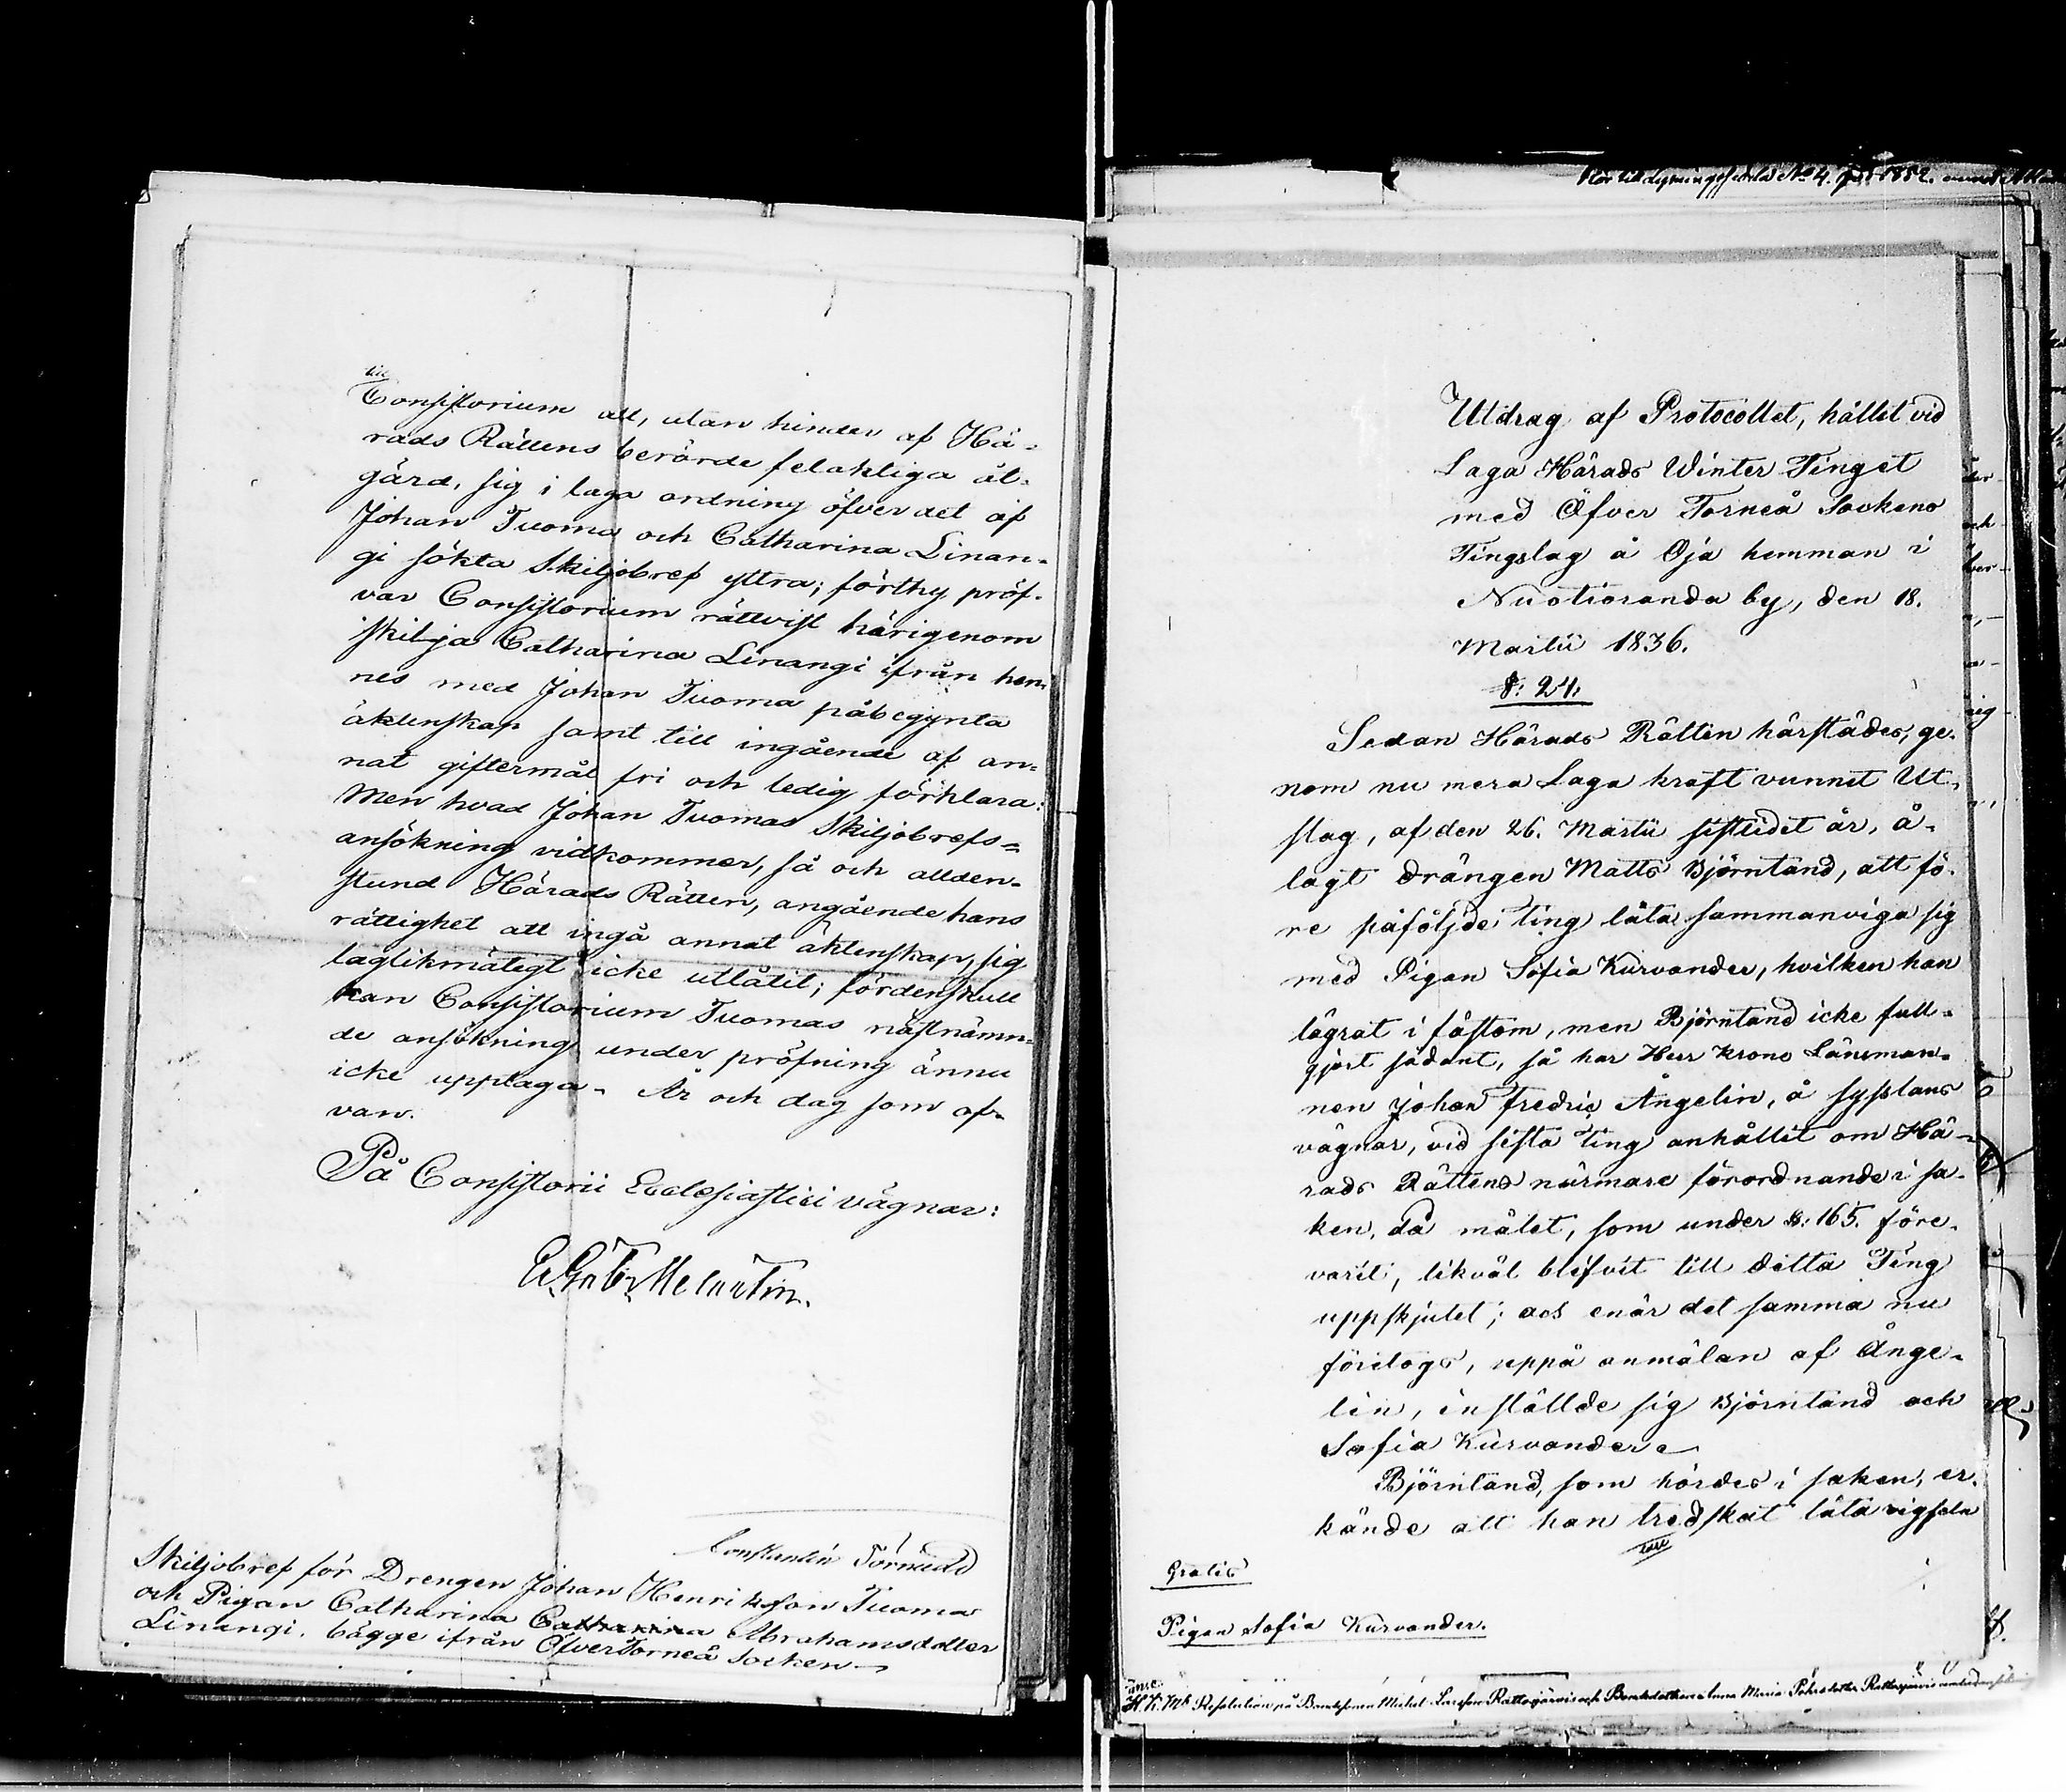 till
Consistorium att, utan hinder af Hä-
rads Rättens berörde felaktiga åt-
gärd, sig i laga ordning öfver det af
Johan Tuoma och Catharina Linan-
gi sökta Skiljobref yttra; förthy pröf-
var Consistorium rättvist härigenom
skilja Catharina Linangi ifrån hen-
nes med Johan Tuoma påbegynta
äktenskap samt till ingående af an-
nat giftermål fri och ledig förklara:
Men hvad Johan Tuomas Skiljobrefs-
ansökning vidkommer, så och allden-
stund Härads Rätten, angående hans
rättighet att ingå annat äktenskap, sig
laglikmätigt icke utlåtit; fördenskull
kan Consistorium Tuomas nästnämn-
de ansökning under pröfning ännu
icke upptaga. År och dag som of-
van.
På Consistorii Ecclesiastici vägnar:
Constantin Törnudd
Skiljobref för Drengen Johan Henriksson Tuoma
och Pigan Catharina Catharina Abrahamsdotter
Linangi, bägge ifrån ÖfverTorneå Socken
No 4. 1852.
Utdrag af Protocollet, hållit vid
Laga Härads Winter Tinget
med Öfver Torneå Sockens
Tingslag å Oja hemman i
Nuotioranda by, den 18.
Martii 1836.
§: 24.
Sedan Härads Rätten härstädes, ge-
nom nu mera Laga kraft vunnit Ut-
slag, af den 26. Martii sistledit år, å-
lagt drängen Matts Björntand, att fö-
re påföljde ting låta sammanviga sig
med Pigan Sofia Kurvander, hvilken han
lägrat i fästom, men Björntand icke full-
gjort sådant, så har Herr Krono Länsman-
nen Johan Fredric Ångelin, å sysslans
vägnar, vid sista ting anhållit om Hä-
rads Rättens närmare förordnande i sa-
ken, då målet, som under §: 165. före-
varit, likväl blifvit till detta Ting
uppskjutet; och enär det samma nu
företogs, uppå anmälan af Ånge-
lin, inställde sig Björntand och
Sofia Kurvander.
Björntand, som hördes i saken, er-
kände att han tredskat låta vigseln
Gratis
Pigan Sofia Kurvander.
Resolution på Bondesonen Michel Larsson Rattosjärvi och Bondedottren Anna Maria Pehrsdotter Rattosjärvis